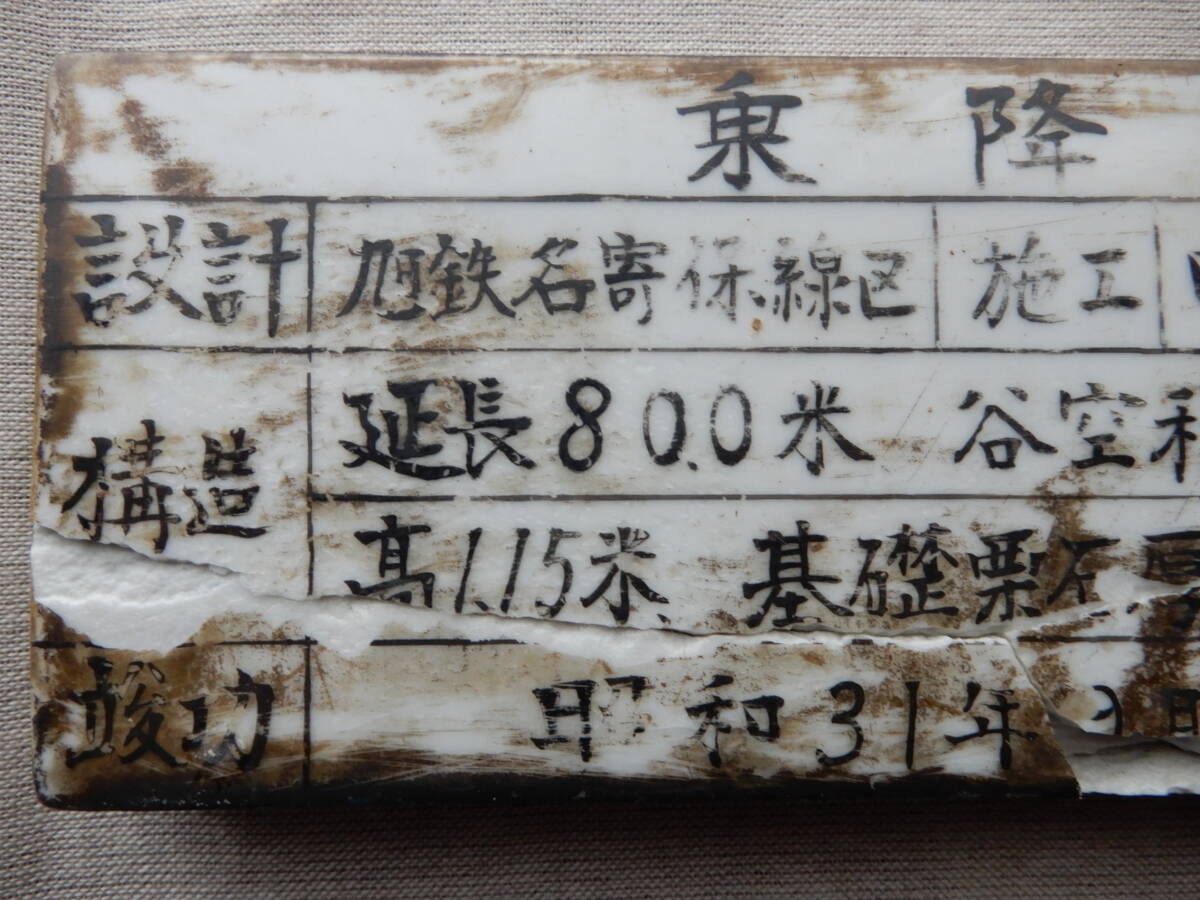 乗降
設計 旭鉄名寄保線区 施工
構造 延長80.0米 谷空積
高1.15米 基礎栗石厚
竣功 昭和31年9月